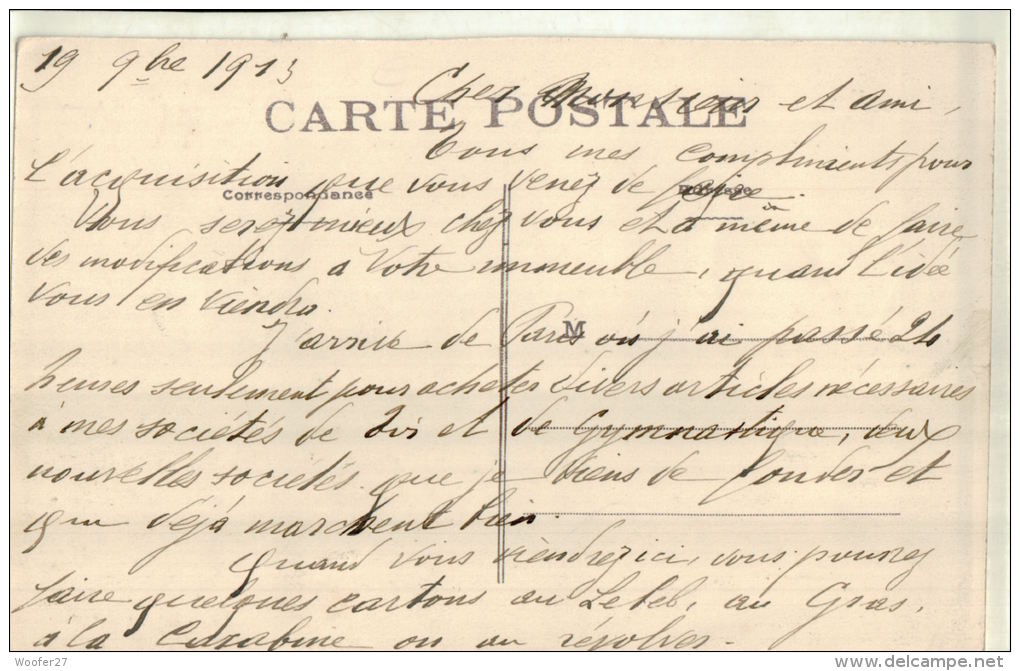 19 9bre 1913
Cher Monsieur et ami,
CARTE POSTALE
Tous mes compliments pour
l'acquisition que vous venez de faire.
Correspondance
Vous serez mieux chez vous et à même de faire
des modifications à votre immeuble, quand l'idée
vous en viendra.
J'arrive de Paris où j'ai passé 24
M
heures seulement pour acheter divers articles nécessaires
à mes sociétés de Tir et de Gymnastique, deux
nouvelles sociétés que je viens de fonder et
qui déjà marchent bien.
Quand vous viendrez ici, vous pourrez
faire quelques cartons au Lebel, au Gras,
à la Carabine ou au révolver.
Woofer27
www.delcampe.net